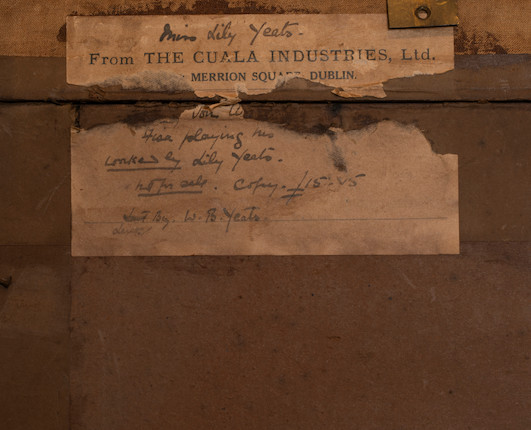 Miss Lily Yeats.
From THE CUALA INDUSTRIES, Ltd.
MERRION SQUARE, DUBLIN.
playing his
worked by Lily Yeats.
not for sale. Copy. £15.
Lent by. W. B. Yeats